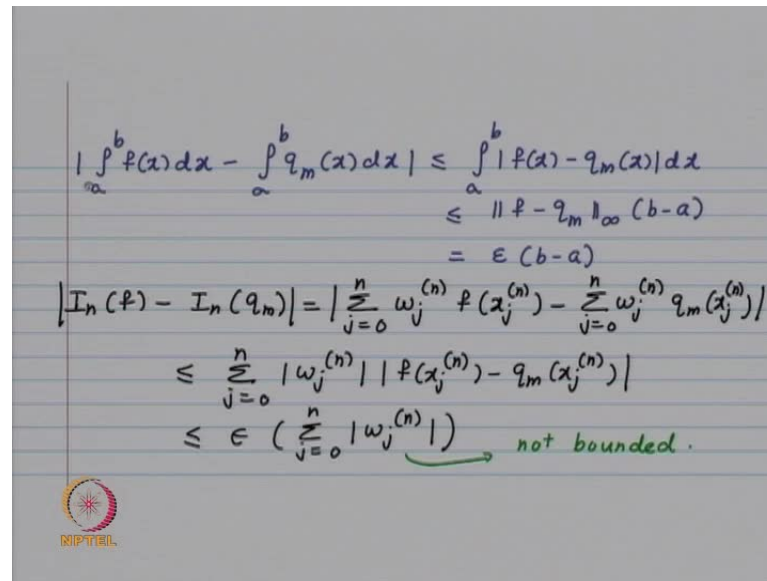 | ∫_a^b f(x) dx - ∫_a^b q_m(x) dx | ≤ ∫_a^b | f(x) - q_m(x) | dx
≤ || f - q_m ||_∞ (b-a)
= ε (b-a)
| I_n(f) - I_n(q_m) | = | ∑_{j=0}^n ω_j^{(n)} f(x_j^{(n)}) - ∑_{j=0}^n ω_j^{(n)} q_m(x_j^{(n)}) |
≤ ∑_{j=0}^n | ω_j^{(n)} | | f(x_j^{(n)}) - q_m(x_j^{(n)}) |
≤ ∈ ( ∑_{j=0}^n | ω_j^{(n)} | ) → not bounded.
NPTEL